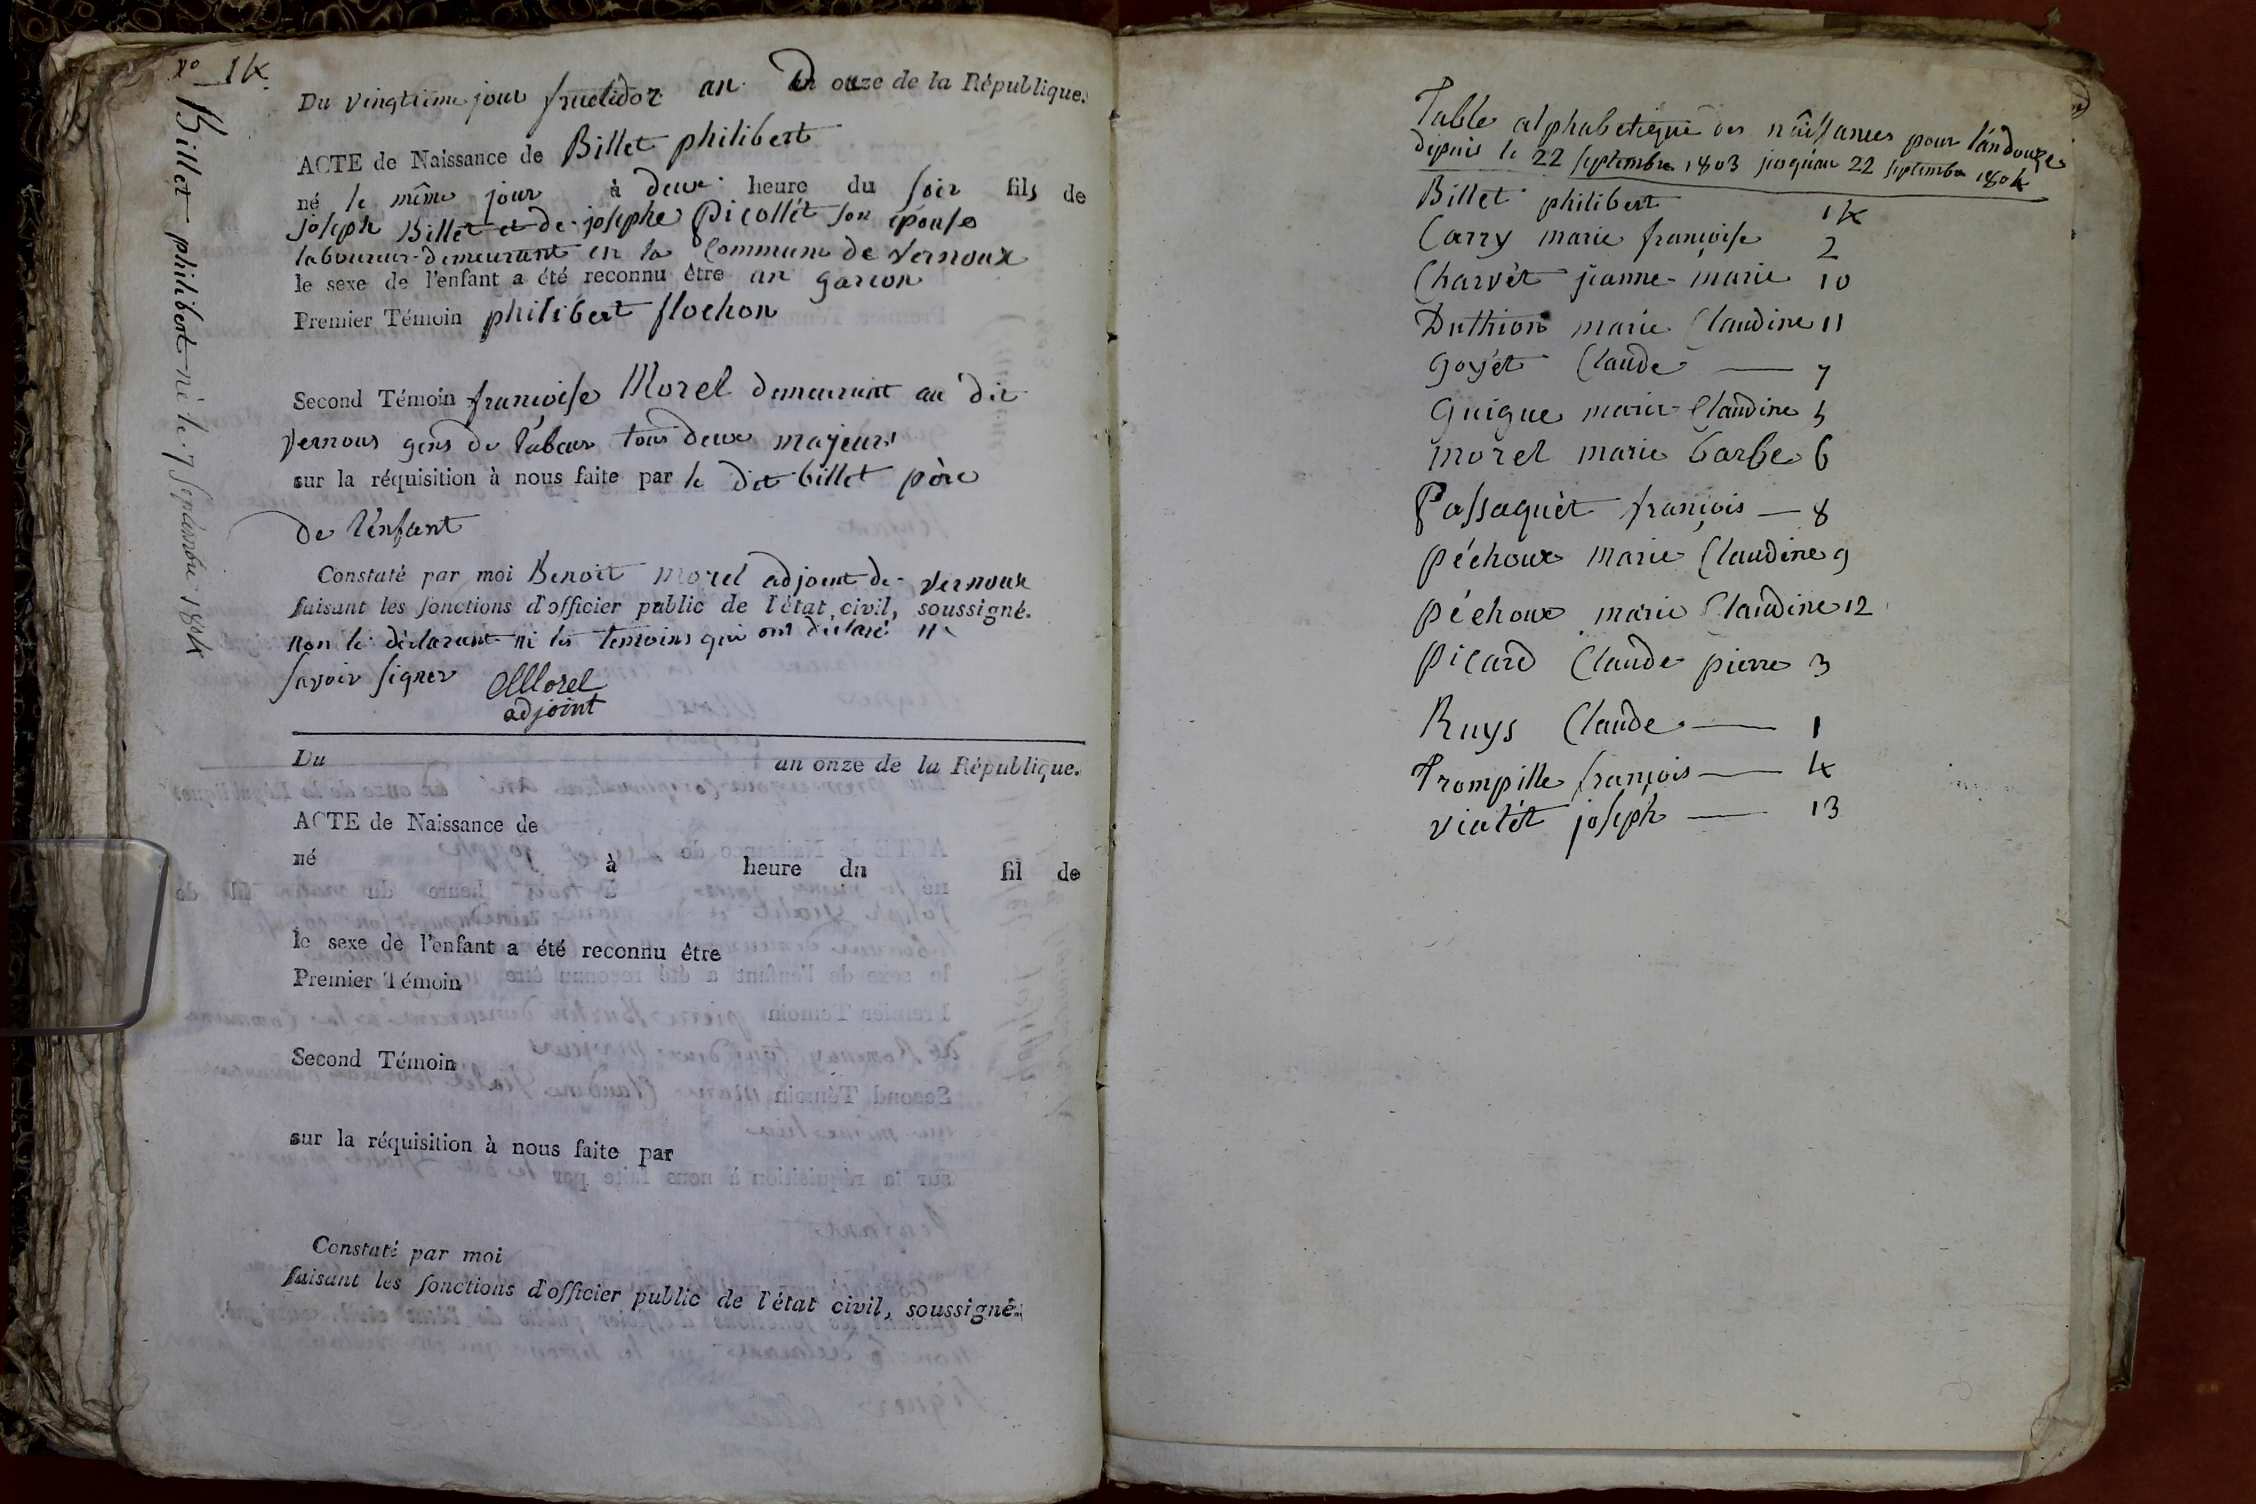 No 14
Billet philibert né le 7 septembre 1804
Du vingtieme jour fructidor an an onze de la République.
ACTE de Naissance de Billet philibert
né le même jour à deux heure du soir fils de
joseph Billet et de josephe Picollét son épouse
laboureur demeurant en la Commune de vernoux
le sexe de l'enfant a été reconnu être un garcon
Premier Témoin philibert flochon
Second Témoin françoise Morel demeurant au dit
vernoux gens de labeur tous deux majeurs
sur la réquisition à nous faite par le dit billet père
de l'enfant
Constaté par moi Benoit morel adjoint de vernoux
faisant les fonctions d'officier public de l'état civil, soussigné.
non le déclarant ni les temoins qui ont déclaré ne
savoir signer Morel
adjoint
Du an onze de la République.
ACTE de Naissance de
né à heure du fil de
le sexe de l'enfant a été reconnu être
Premier Témoin
Second Témoin
sur la réquisition à nous faite par
Constaté par moi
faisant les fonctions d'officier public de l'état civil, soussigné.
Table alphabetique des naissances pour l'an douze
depuis le 22 septembre 1803 jusqu'au 22 septembre 1804
Billet philibert 14
Carry marie françoise 2
Charvét jeanne marie 10
Duthion marie Claudine 11
Goyét Claude — 7
Guigue marie Claudine 5
morel marie barbe 6
Passaquét françois — 8
péchoux marie Claudine 9
péchoux marie Claudine 12
picard Claude pierre 3
Ruys Claude — 1
Trompille françois — 4
vialét joseph — 13